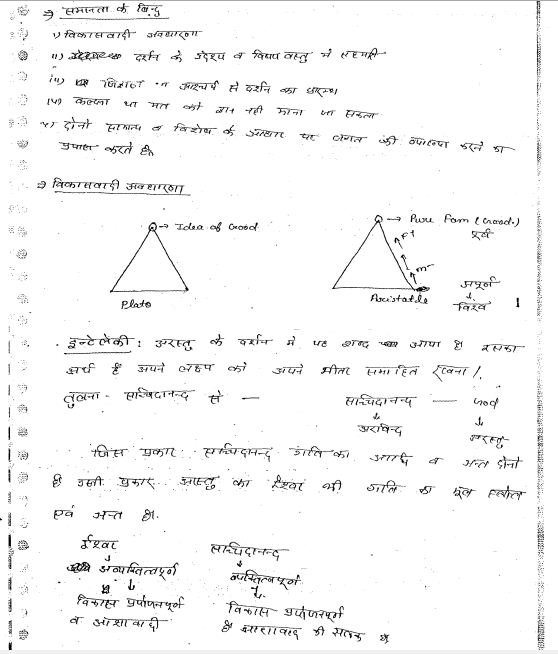 ⇒ समानता के बिन्दु
i) विकासवादी अवधारणा
ii) दर्शन के उद्देश्य व विषय वस्तु में सहमति
iii) जिज्ञासा आश्चर्य से दर्शन का प्रारम्भ
iv) कल्पना या मत को ज्ञान नही माना जा सकता
v) दोनो सामान्य व विशेष के आधार पर जगत की व्याख्या करने का
प्रयास करते है।
⇒ विकासवादी अवधारणा
→ Idea of Good
→ Pure Form (Good.)
पूर्ण
F↑
m
अपूर्ण
↓
विश्व
Plato
Aristotle
इन्टेलेकी : अरस्तु के दर्शन में यह शब्द आया है इसका
अर्थ है अपने लक्ष्य को अपने भीतर समाहित रखना।
तुलना - सच्चिदानन्द से —
सच्चिदानन्द — God
↓ ↓
अरविन्द अरस्तु
जिस प्रकार सच्चिदानन्द गति का आदि व अन्त दोनो
है उसी प्रकार अरस्तु का ईश्वर भी गति का मूल स्त्रोत
एवं अन्त है।
ईश्वर सच्चिदानन्द
↓ ↓
अव्यक्तित्वपूर्ण व्यक्तित्वपूर्ण
↓ ↓
विकास प्रयोजनपूर्ण विकास प्रयोजनपूर्ण
व आशावादी है आशावाद की झलक है